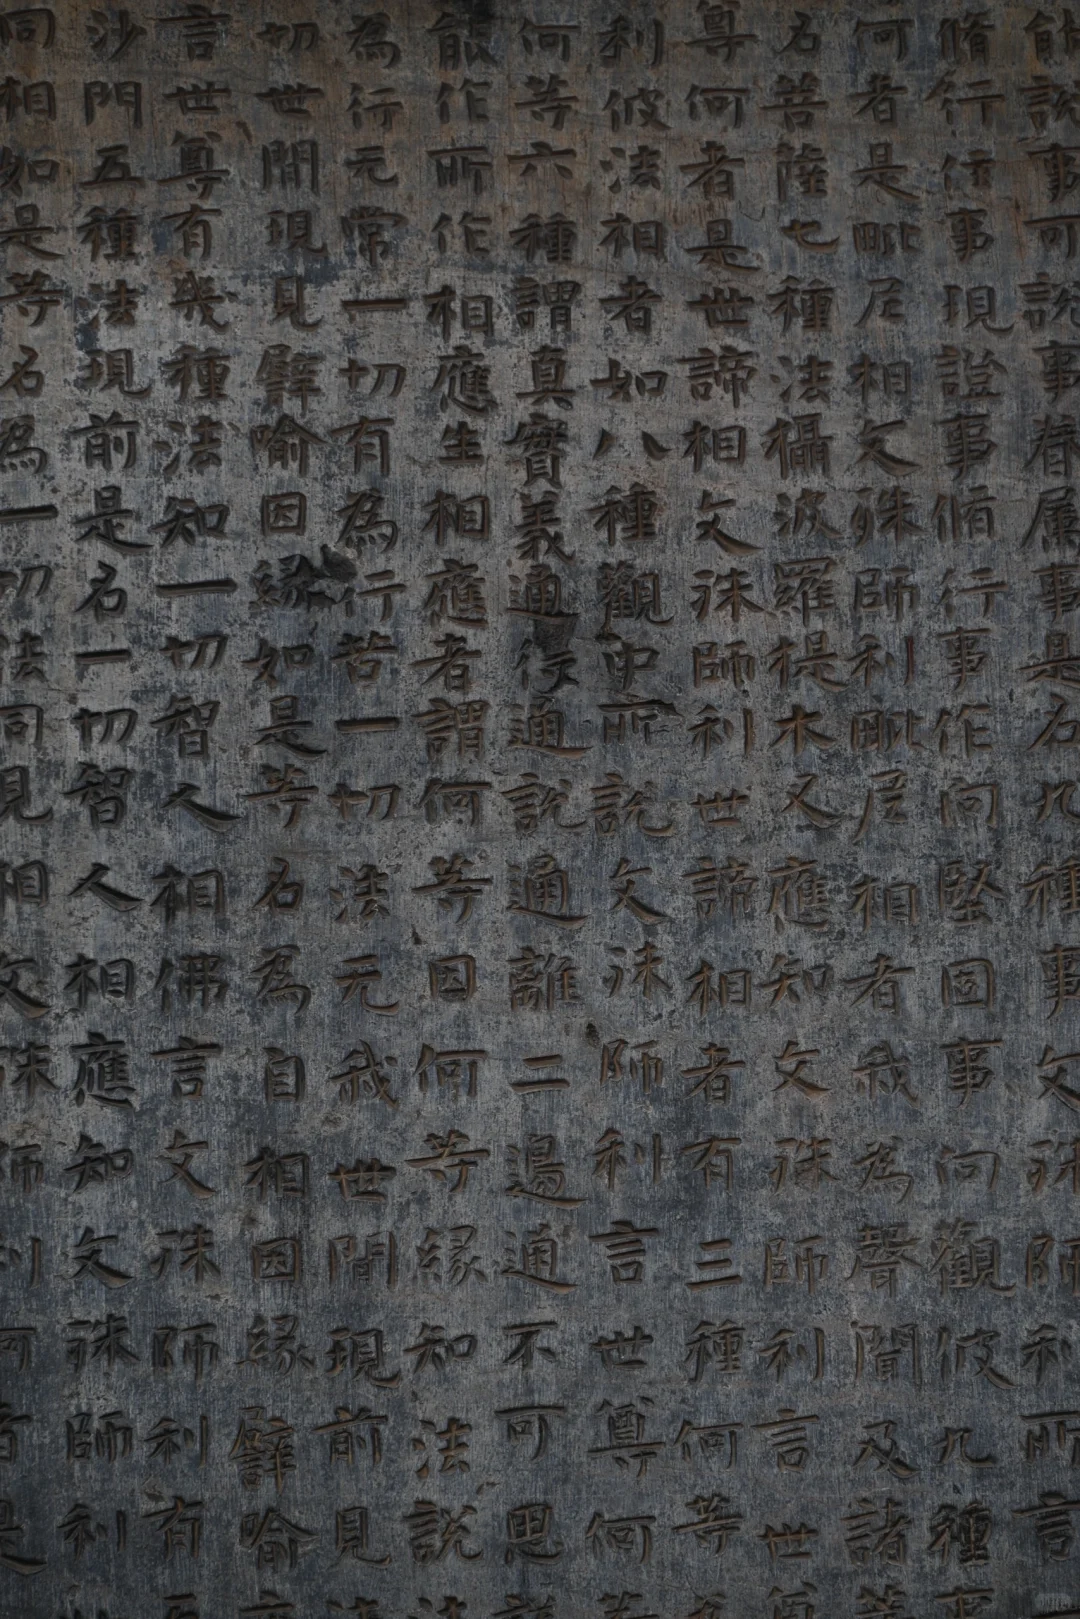 能說事可說事眷属事是名九種事文殊師利所言
脩行行事現證事脩行事作向堅固事向觀彼九種
何者是毗尼相文殊師利毗尼相者我為聲聞及諸
名菩薩七種法攝波羅提木叉應知文殊師利言世
尊何者是世諦相文殊師利世諦相者有三種何等
利彼法相者如八種觀中所說文殊師利言世尊何
何等六種謂真實義通得通說通離二邊通不可思
能作所作相應生相應者謂何等因何等緣知法說
為行无常一切有為行苦一切法无我世間現前見
切世間現見譬喻因緣如是等名為自相因緣譬喻
言世尊有幾種法知一切智人相佛言文殊師利有
沙門五種法現前是名一切智人相應知文殊師利
同相如是等名為一切法同見相文殊師利何者是